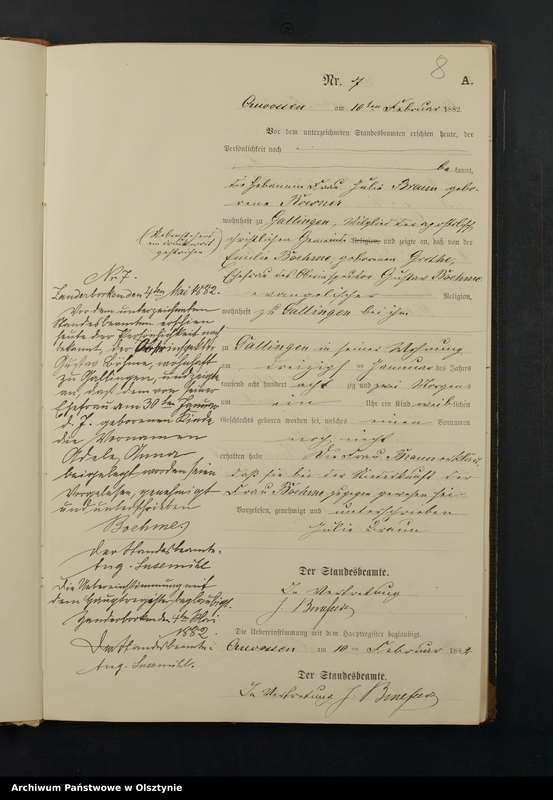 8
Nr. 7 A.
am 10ten Februar 1882.
Vor dem unterzeichneten Standesbeamten erschien heute, der
Persönlichkeit nach
be kannt,
die Hebamme Frau Julie Braun gebo-
rene
wohnhaft zu Gallingen, Mitglied der apostolisch
christlichen Gemeinde Religion, und zeigte an, daß von der
Emilie Boehme, geborenen Grothe,
Ehefrau des Oberinspektor Gustav Boehme
evangelischer Religion,
wohnhaft zu Gallingen bei ihm
zu Gallingen in seiner Wohnung
am dreißigsten Januar des Jahres
tausend acht hundert acht zig und zwei Morgens
um ein Uhr ein Kind weib lichen
Geschlechts geboren worden sei, welches einen Vornamen
noch nicht
erhalten habe. Die Frau Braun erklärt,
daß sie bei der Niederkunft der
Frau Boehme zugegen gewesen sei
Vorgelesen, genehmigt und unterschrieben
Julie Braun
Der Standesbeamte.
In Vertretung
Die Uebereinstimmung mit dem Hauptregister beglaubigt
am 10 ten Februar 1882
Der Standesbeamte.
In Vertretung
No. 7.
Landerborken den 4ten Mai 1882.
Vor dem unterzeichneten
Standesbeamten erschien
heute der Persönlichkeit nach
bekannt, der Oberinspektor
Gustav Böhme, wohnhaft
zu Gallingen, und zeigte
an, daß dem von seiner
Ehefrau am 30ten Januar
d. J. geborenen Kinde
die Vornamen
Adele, Anna
beigelegt worden seien
Vorgelesen, genehmigt
und unterschrieben
Boehme
Der Standesbeamte.
Aug. Susemihl
Die Uebereinstimmung mit
dem Hauptregister beglaubigt.
Landerborken den 4ten Mai
1882.
Der Standesbeamte:
Aug. Susemihl.
Archiwum Państwowe w Olsztynie